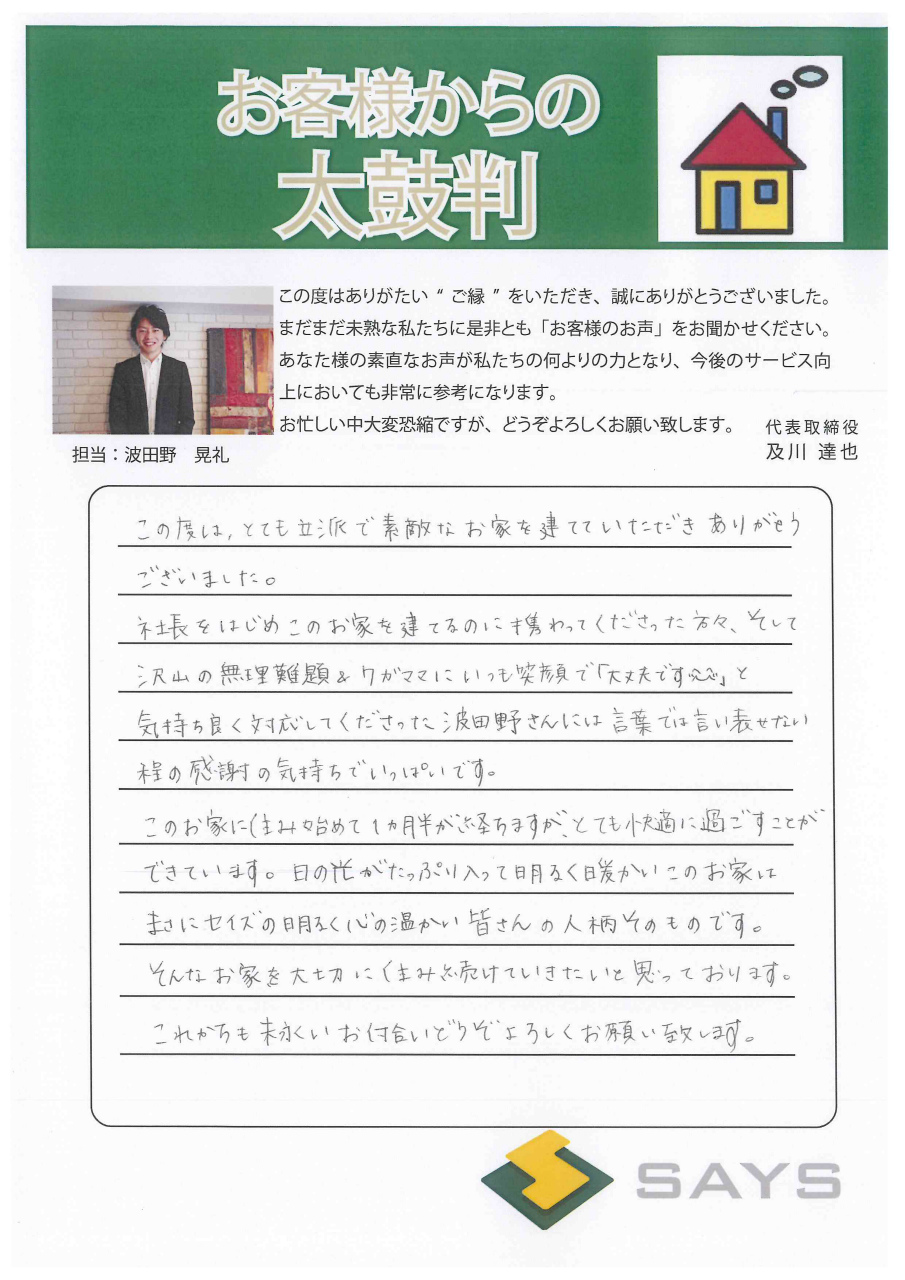 お客様からの
太鼓判
この度はありがたい“ご縁”をいただき、誠にありがとうございました。
まだまだ未熟な私たちに是非とも「お客様のお声」をお聞かせください。
あなた様の素直なお声が私たちの何よりの力となり、今後のサービス向
上においても非常に参考になります。
お忙しい中大変恐縮ですが、どうぞよろしくお願い致します。
代表取締役
及川 達也
担当：波田野 晃礼
この度は,とても立派で素敵なお家を建てていただきありがとう
ございました。
社長をはじめこのお家を建てるのに携わってくださった方々、そして
沢山の無理難題&ワガママにいつも笑顔で「大丈夫です^^」と
気持ち良く対応してくださった波田野さんには言葉では言い表せない
程の感謝の気持ちでいっぱいです。
このお家に住み始めて1ヵ月半が経ちますが、とても快適に過ごすことが
できています。日の光がたっぷり入って明るく暖かいこのお家は
まさにセイズの明るく心の温かい皆さんの人柄そのものです。
そんなお家を大切に住み続けていきたいと思っております。
これからも末永いお付合いどうぞよろしくお願い致します。
SAYS